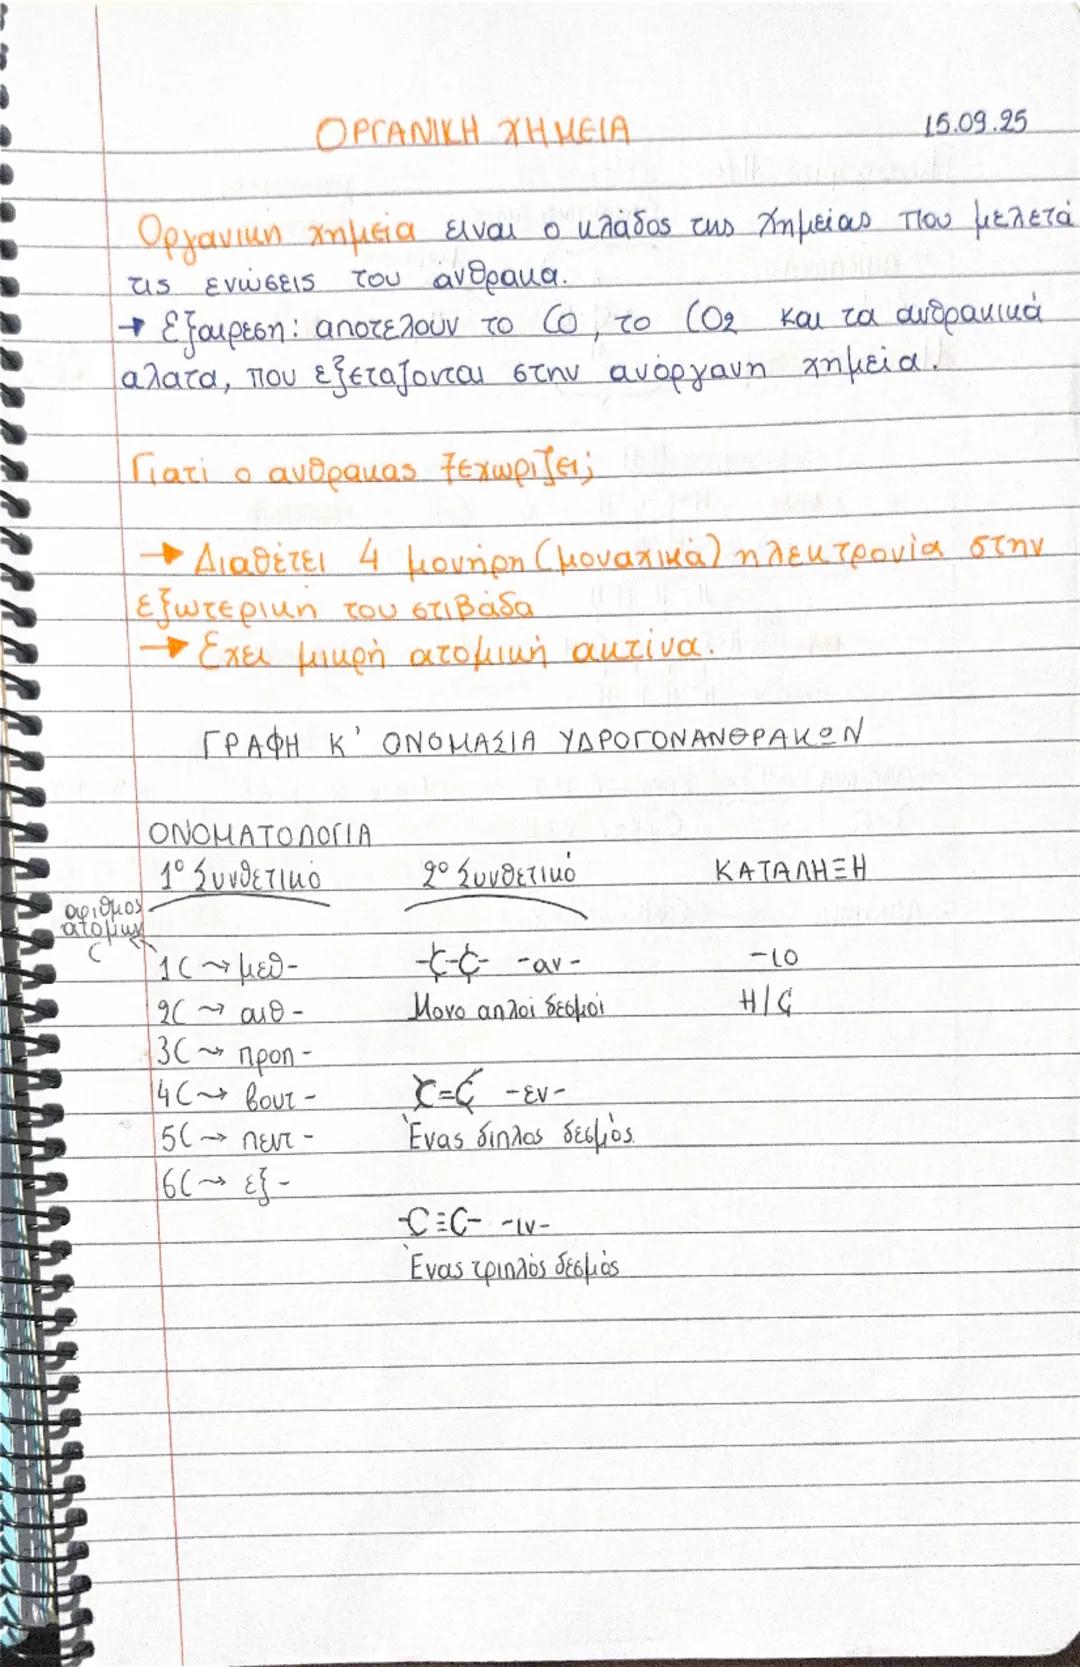 ΟΡΓΑΝΙΚΗ ΧΗΜΕΙΑ 15.09.25
Οργανικη χημεία ειναι ο κλάδος της χημείας που μελετά
τις ενώσεις του ανθρακα.
→ Εξαιρεση: αποτελουν το CO, το CO2 και τα ανθρακικά
αλατα, που εξεταζονται στην ανόργανη χημεία.
Γιατί ο ανθρακας ξεχωρίζει;
→ Διαθέτει 4 μονήρη (μοναχικά) ηλεκτρονία στην
εξωτερικη του στιβάδα
→ Εχει μικρή ατομική ακτίνα.
ΓΡΑΦΗ Κ' ΟΝΟΜΑΣΙΑ ΥΔΡΟΓΟΝΑΝΘΡΑΚΩΝ
ΟΝΟΜΑΤΟΛΟΓΙΑ
1º Συνθετικό 2º Συνθετικό ΚΑΤΑΛΗΞΗ
αριθμος
ατομων
C
1C → μεθ- -C-C- -αν- -ιο
2C → αιθ- Μονο απλοί δεσμοί H/C
3C → προπ-
4C → βουτ- C=C -εν-
5C → πεντ- Ένας διπλος δεσμός.
6C → εξ-
-C≡C- -ιν-
Ένας τριπλός δεσμός